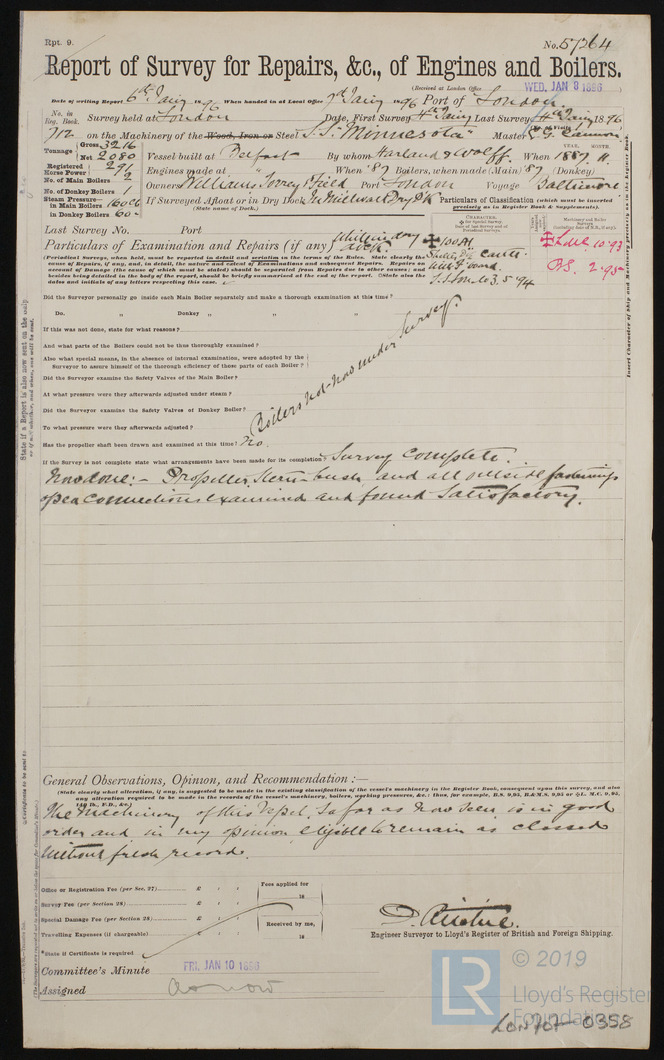 Rpt. 9.
No. 57264
Report of Survey for Repairs, &c., of Engines and Boilers.
(Received at London Office WED. JAN 8 1896 )
Date of writing Report 6th Jany 1896 When handed in at Local Office 7th Jany 1896 Port of London
No. in Reg. Book. Survey held at London Date, First Survey 4th Jany Last Survey 4th Jany 1896
(No. of Visits )
712 on the Machinery of the Wood, Iron or Steel S.S. "Minnesota" Master
Tonnage Gross 3216
Net 2080
Vessel built at Belfast By whom Harland & Wolff. When 1887 11.
YEAR. MONTH.
Registered Horse Power 291
Engines made at " When '87 Boilers, when made (Main) '87 (Donkey)
No. of Main Boilers 2
No. of Donkey Boilers 1
Owners Williams Torrey & Field Port London Voyage Baltimore
Steam Pressure in Main Boilers 160
in Donkey Boilers 60
If Surveyed Afloat or in Dry Dock In Millwall Dry Dk
(State name of Dock.)
Particulars of Classification (which must be inserted precisely as in Register Book & Supplements).
Last Survey No. Port
Particulars of Examination and Repairs (if any) Millwall dry dock.
(Periodical Surveys, when held, must be reported in detail and seriatim in the terms of the Rules. State clearly the
cause of Repairs, if any, and, in detail, the nature and extent of Examinations and subsequent Repairs. Repairs on
account of Damage (the cause of which must be stated) should be separated from Repairs due to other causes; and
besides being detailed in the body of the report, should be briefly summarised at the end of the report. State also the
dates and initials of any letters respecting this case.
CHARACTER.
for Special Survey.
Date of last Survey and of Periodical Surveys
100A1
S.S. Lon. No 3. 5.94
Machinery and Boiler Surveys
LMC 10.93
BS. 2.95
Did the Surveyor personally go inside each Main Boiler separately and make a thorough examination at this time?
Do. " Donkey " " "
If this was not done, state for what reasons?
And what parts of the Boilers could not be thus thoroughly examined?
Also what special means, in the absence of internal examination, were adopted by the
Surveyor to assure himself of the thorough efficiency of those parts of each Boiler?
Did the Surveyor examine the Safety Valves of the Main Boiler?
At what pressure were they afterwards adjusted under steam?
Did the Surveyor examine the Safety Valves of Donkey Boiler?
To what pressure were they afterwards adjusted?
Boilers not now under Survey.
Has the propeller shaft been drawn and examined at this time? No.
If the Survey is not complete state what arrangements have been made for its completion Survey Complete.
Now done:- Propeller, Stern bush and all outside fastenings
of sea connections examined and found satisfactory.
General Observations, Opinion, and Recommendation:—
(State clearly what alteration, if any, is suggested to be made in the existing classification of the vessel's machinery in the Register Book, consequent upon this survey, and also
any alteration required to be made in the records of the vessel's machinery, boilers, working pressures, &c.: thus, for example, B.S. 9,95, B.&M.S. 9,95 or L.M.C. 9,95,
140 lb., F.D., &c.)
The Machinery of this Vessel, so far as now seen is in good
order and in my opinion eligible to remain as classed
without fresh record.
Office or Registration Fee (per Sec. 27) £ : :
Survey Fee (per Section 28) £ : :
Special Damage Fee (per Section 28) £ : :
Travelling Expenses (if chargeable) £ : :
Fees applied for
18
Received by me,
18
*State if Certificate is required
D. Ritchie.
Engineer Surveyor to Lloyd's Register of British and Foreign Shipping.
Committee's Minute FRI. JAN 10 1896
Assigned as now
LR
© 2019
Lloyd's Register
Foundation
0358
State if a Report is also now sent on the Ship